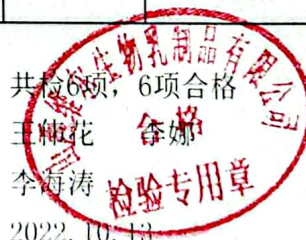 共检6项，6项合格
王伟花 李娜
李海涛
2022.10.13
生物乳制品有限公司
合格
检验专用章